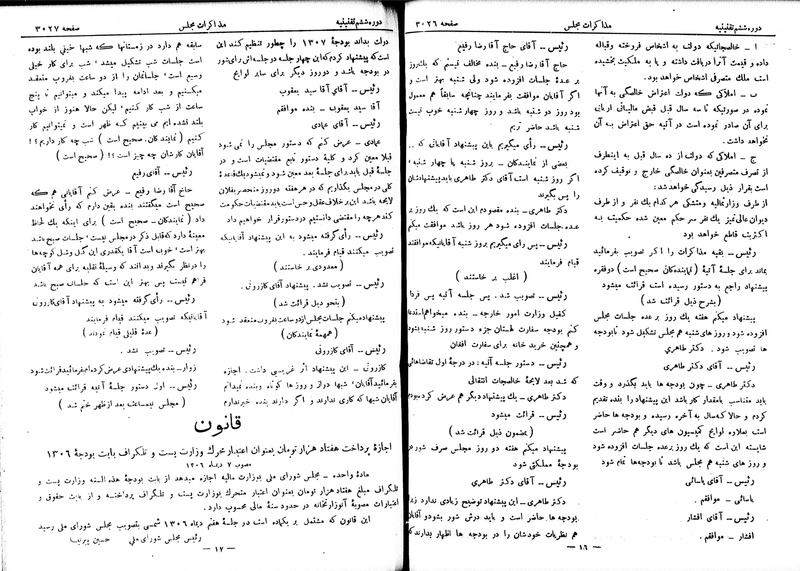 دوره ششم تقنینیه
مذاکرات مجلس
صفحه ۳۰۲۶
ا - خالصجاتیکه دولت به اشخاص فروخته وقباله
داده و قیمت آنرا دریافت داشته و یا به ملکیت بخشیده
است ملك متصرفی اشخاص خواهد بود.
ب - املاکی که دولت اعتراض خالصگی به آنها
نموده در صورتیکه تا سه سال قبل قبض مالیاتی اربابی
برای آن صادر نموده است در آتیه حق اعتراض به آن
نخواهد داشت.
ج - املاکی که دولت از ده سال قبل به اینطرف
از تصرف متصرفین بعنوان خالصگی خارج و توقیف کرده
است بقرار ذیل رسیدگی خواهدشد:
از طرف وزارتمالیه و متشکی هر کدام یك نفر و از طرف
دیوان عالی تمیز یك نفر سر حکم معین شده حکمیت به
اکثریت قاطع خواهد بود
رئیس - بقیه مذاکرات را اگر تصویب بفرمائید
بماند برای جلسهٔ آتیهٔ (نمایندگان صحیح است) دوفقره
پیشنهاد راجع به دستور رسیده است قرائت میشود
(بشرح ذیل قرائت شد)
پیشنهاد میکنم هفته یك روز بر عده جلسات مجلس
افزوده شود و روز های شنبه هم مجلس تشکیل شود تا بودجه
ها تصویب شود. دکتر طاهری
رئیس - آقای دکتر طاهری
دکتر طاهری - چون بودجه ها باید بگذرد و وقت
باید متناسب بامقدار کار باشد این پیشنهاد را بنده تقدیم
کردم و حالا که سال به آخر رسیده و بودجه ها حاضر
است بعلاوه لوایح کمیسیون های دیگر هم حاضر است
شایسته این است که یك روز بر عده جلسات افزوده شود
و روز های شنبه هم مجلس باشد تا بودجه ها تمام شود
رئیس - آقای یاسائی
یاسائی - موافقم.
رئیس - آقای افشار
افشار - موافقم.
رئیس - آقای حاج آقا رضا رفیع
حاج آقا رضا رفیع - بنده مخالف نیستم که یك روز
بر عدهٔ جلسات افزوده شود ولی شنبه بهتر است و
اگر آقایان موافقت بفرمایند چنانچه سابقاً هم معمول
بود روز دو شنبه باشد و روز چهار شنبه خوب نیست
شنبه باشد حاضر تریم
رئیس - رأی میگیریم باین پیشنهاد آقایانی که ..
بعضی از نمایندگان - بروز شنبه یا چهار شنبه؟
اگر روز شنبه است آقای دکتر طاهری باید پیشنهادشان
را پس بگیرند
دکتر طاهری - بنده مقصودم این است که یك روز بر
عده جلسات افزوده شود هر روز باشد موافقت میکنم
رئیس - پس رأی میگیریم بروز شنبه آقایانیکه موافقند
قیام فرمایند
(اغلب بر خاستند)
رئیس - تصویب شد. پس جلسه آتیه پس فردا
کفیل وزارت امور خارجه - بنده میخواهم استدعا
کنم بودجه سفارت لهستان جزء دستور روز شنبه بشود
و همچنین خرید خانه برای سفارت افغان
رئیس - دستور جلسه آتیه: در درجهٔ اول تقاضاهائی
که شد بعد لایحهٔ خالصجات انتقالی
دکتر طاهری - یك پیشنهاد دیگر هم عرض کرده بودم
رئیس - قرائت میشود
(بمضمون ذیل قرائت شد)
پیشنهاد میکنم هفته دو روز مجلس صرف شور در
بودجهٔ مملکتی شود
رئیس - آقای دکتر طاهری
دکتر طاهری - این پیشنهاد توضیح زیادی ندارد زیرا
بودجه ها حاضر است و باید درش شور بشود و آقایان
هم نظریات خودشان را در بودجه ها اظهار بدارند که
- ۱۶ -
دوره ششم تقنینیه
مذاکرات مجلس
صفحه ۳۰۲۷
درك بداند بودجهٔ ۱۳۰۷ را چطور تنظیم کنند این
است که پیشنهاد کردم که این چهار جلسه دو جلسه اش برای شور
در بودجه باشد و دوروز دیگر برای سایر لوایح
رئیس - آقای آقا سید یعقوب
آقا سید یعقوب - بنده موافقم
رئیس - آقای عمادی
عمادی - عرض کنم که دستور مجلس را نمی شود
قبلا معین کرد و کلیهٔ دستور تابع مقتضیات است و در
جلسهٔ قبل باید برای جلسهٔ بعد معین شود و نمیشود یك قاعدهٔ
کلی در مجلس بگذاریم که در هر هفته دوروز منحصر بفلان
لایحه باشد این بر خلاف عقل و حس است باید مقتضیات حکومت
کند هر چه را مقتضی دانستیم در دستور قرار خواهیم داد
رئیس - رأی گرفته میشود به این پیشنهاد آقایانیکه
تصویب میکنند قیام فرمایند.
(معدودی بر خاستند)
رئیس - تصویب نشد. پیشنهاد آقای کازرونی.
(بنحو ذیل قرائت شد)
پیشنهاد میکنم جلسات مجلس از دو ساعت بغروب منعقد شود
(همهمهٔ نمایندگان)
رئیس - آقای کازرونی
کازرونی - این پیشنهاد اثر غریبی داشت. اجازه
بفرمائید آقایان؛ شبها دراز و روز ها کوتاه و بنده نمیدانم
آقایان شبها چه کاری دارند و اگر دارند بنده خبر ندارم
سابقه هم دارد در زمستانها که شبها خیلی بلند بوده
است جلسات شب تشکیل میشد؛ شب برای کار خیلی
وسیع است؛ جلساتمان را از دو ساعت بغروب منعقد
میکنیم و بعد ادامه پیدا میکند و میتوانیم تا پنج
ساعت از شب کار کنیم؛ لیکن حالا هنوز از خواب
بلند نشده ایم می بینیم که ظهر است و نمیتوانیم کار
کنیم (نمایندگان. صحیح است) شب چه کار داریم؟!
آقایان کارشان چه چیز است؟! (صحیح است)
رئیس - آقای رفیع
حاج آقا رضا رفیع - عرض کنم آقایانی هم که
صحیح است میگفتند بنده یقین دارم که رأی نخواهند
داد (نمایندگان - صحیح است) برای اینکه یك لحاظ
معینهٔ دارد که قابل ذکر در مجلس نیست؛ جلسات صبح باشد
بهتر است؛ خوب است آقا یکقدری این گل وشل کوچه ها
را درنظر بگیرند و بدانند که وسیلهٔ نقلیه برای همه آقایان
فراهم نیست پس بهتر این است که جلسات صبح باشد
رئیس - رأی گرفته میشود به پیشنهاد آقای کازرونی
آقایانیکه تصویب میکنند قیام فرمایند
(عدهٔ قلیلی قیام نمودند)
رئیس - تصویب نشد.
زوار - بنده یك پیشنهادی عرض کرده ام بفرمائید قرائت شود
رئیس - اول دستور جلسهٔ آتیه قرائت میشود
(مجلس نیمساعت بعد از ظهر ختم شد)
قانون
اجازهٔ پرداخت هفتاد هزار تومان بعنوان اعتبار متحرك وزارت پست و تلگراف بابت بودجهٔ ۱۳۰۶
مصوب ۷ دیماه ۱۳۰۶
مادهٔ واحده - مجلس شورای ملی بوزارت مالیه اجازه میدهد از بابت بودجهٔ هذه السنه وزارت پست و
تلگراف مبلغ هفتاد هزار تومان بعنوان اعتبار متحرك بوزارت پست و تلگراف پرداخته و از بابت حقوق و
اعتبارات مصوبهٔ آنوزارتخانه در حدود سنهٔ مالی محسوب دارد.
این قانون که مشتمل بر یکماده است در جلسهٔ هفتم دیماه ۱۳۰۶ شمسی بتصویب مجلس شورای ملی رسید
رئیس مجلس شورای ملی حسین پیرنیا
- ۱۷ -